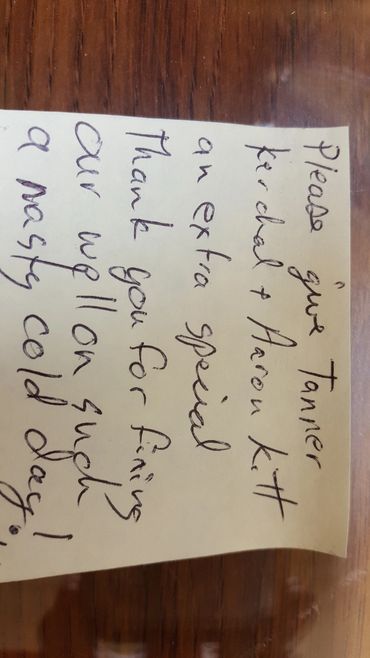 Please give Tanner
Kerchal + Aaron Kitt
an extra special
Thank you for fixing
our well on such
a nasty cold day!